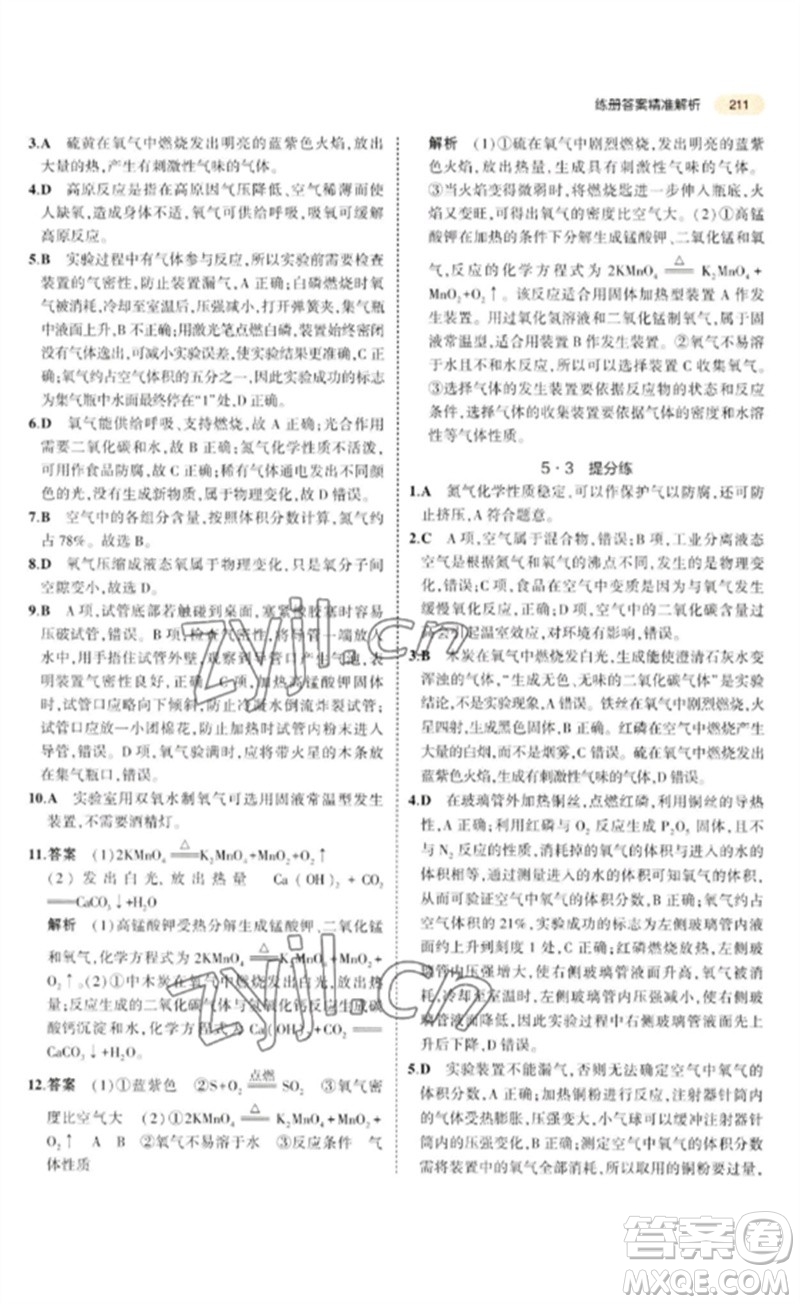 练册答案精准解析 211
3.A 硫黄在氧气中燃烧发出明亮的蓝紫色火焰,放出
大量的热,产生有刺激性气味的气体。
4.D 高原反应是指在高原因气压降低、空气稀薄而使
人缺氧,造成身体不适,氧气可供给呼吸,吸氧可缓解
高原反应。
5.B 实验过程中有气体参与反应,所以实验前需要检查
装置的气密性,防止装置漏气,A正确;白磷燃烧时氧
气被消耗,冷却至室温后,压强减小,打开弹簧夹,集气瓶
中液面上升,B不正确;用激光笔点燃白磷,装置始终密闭
没有气体逸出,可减小实验误差,使实验更精确,C正
确;氧气约占空气体积的五分之一,因此实验成功的标志
为集气瓶中水面最终停在“1”处,D正确。
6.D 氧气能供给呼吸、支持燃烧,故A正确;光合作用
需要二氧化碳和水,故B正确;氮气化学性质不活泼,
可用作食品防腐,故C正确;稀有气体通电发出不同颜
色的光,没有生成新物质,属于物理变化,故D错误。
7.B 空气中的各组分含量,按照体积分数计算,氮气约
占78%。故选B。
8.D 氧气压缩成液态氧属于物理变化,是因为分子间
空隙变小,故选D。
9.B A项,试管底部若触碰到桌面,塞紧橡胶塞时容易
压破试管,错误。B项,检查气密性,将导管一端放入
水中,用手紧握试管外壁,观察到导管口产生气泡,表
明装置气密性良好,正确。C项,加热高锰酸钾制氧气
时,试管口应略向下倾斜,防止冷凝水倒流炸裂试管;试
管口应放一小团棉花,防止加热时试管内粉末进入
导管,错误。D项,氧气验满时,应将带火星的木条放
在集气瓶口,错误。
10.A 实验室用双氧水制氧气可选用固液常温型发生
装置,不需要酒精灯。
11.答案 (1)2KMnO₄ △══ K₂MnO₄+MnO₂+O₂↑
(2)发出白光,放出热量 Ca(OH)₂+CO₂══
CaCO₃↓+H₂O
解析 (1)高锰酸钾受热分解生成锰酸钾、二氧化锰
和氧气,化学方程式为2KMnO₄ △══ K₂MnO₄+MnO₂+
O₂↑。(2)中木炭在氧气中燃烧发出白光,放出热
量;反应生成的二氧化碳气体与氢氧化钙反应生成碳
酸钙沉淀和水,化学方程式为Ca(OH)₂+CO₂══
CaCO₃↓+H₂O。
12.答案 (1)①蓝紫色 ②S+O₂ 点燃══ SO₂ ③氧气密
度比空气大 (2)①2KMnO₄ △══ K₂MnO₄+MnO₂+
O₂↑ A B ②氧气不易溶于水 ③反应条件 气
体性质
解析 (1)①硫在氧气中剧烈燃烧,发出明亮的蓝紫
色火焰,放出热量,生成有刺激性气味的气体。
③当火焰变得微弱时,将燃烧匙进一步伸入瓶底,火焰
又变旺,可得出氧气的密度比空气大。(2)①高锰
酸钾在加热的条件下分解生成锰酸钾、二氧化锰和氧
气,反应的化学方程式为2KMnO₄ △══ K₂MnO₄+
MnO₂+O₂↑。该反应适合用固体加热型装置A作发
生装置。用过氧化氢溶液和二氧化锰制氧气,属于固
液常温型,所以选择装置B作发生装置。②氧气不易溶
于水且不和水反应,所以可以选择装置C收集氧气。
③选择气体的发生装置要依据反应物的状态和反应
条件,气体的收集装置要依据气体的密度和水溶
性等气体性质。
5·3 提分练
1.A 氮气化学性质稳定,可以作保护气以防腐,还可防
止挤压,A符合题意。
2.C A项,空气属于混合物,错误;B项,工业分离液态
空气是根据氮气和氧气的沸点不同,发生了物理变
化,错误;C项,食品在空气中变质是因为与氧气发生
缓慢氧化反应,正确;D项,二氧化碳含量的增加,过
会引起温室效应,对环境有影响,错误。
3.B 木炭在氧气中燃烧发出白光,生成能使澄清石灰水变
浑浊的气体,“生成无色、无味的二氧化碳气体”是实验
结论,不是实验现象,A错误。铁丝在氧气中燃烧火
星四射,生成黑色固体,B正确。红磷在氧气中燃烧产生
大量的白烟,而不是烟雾,C错误。硫在氧气中燃烧发出
蓝紫色火焰,生成有刺激性气味的气体,D错误。
4.D 在玻璃管外加热铜丝,点燃红磷,利用铜丝的导热
性,A正确。利用红磷与O₂反应生成P₂O₅固体,装置内
压强减小,消耗掉的氧气的体积与进入的水的体积相等,
因此可验证空气中氧气的体积分数,B正确。氧气约占空气
体积的21%,实验成功的标志为左侧玻璃管内液面
约上升到刻度1处,C正确。红磷燃烧放热,左侧
玻璃管内压强增大,因此右侧玻璃管液面升高,最终
冷却至室温时,左侧玻璃管内压强减小,因此右侧玻璃
管液面降低,因此实验过程中右侧玻璃管液面先上升
后下降,D错误。
5.D 实验装置不能漏气,否则无法确定空气中氧气的体
积分数,A正确;加热铜粉时,注射器针筒和玻璃管内
的气体受热膨胀,压强变大,小气球可以缓冲注射器针
筒内的压强变化,B正确;测定空气中氧气的体积分数
需将装置中的氧气全部消耗,所以取用的铜粉要过量,
zyjl.cn
zyjl.cn
答案圈
MXQE.COM